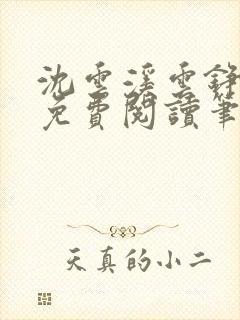 沈雲溪雲錚
免費閱讀筆
天真的小二